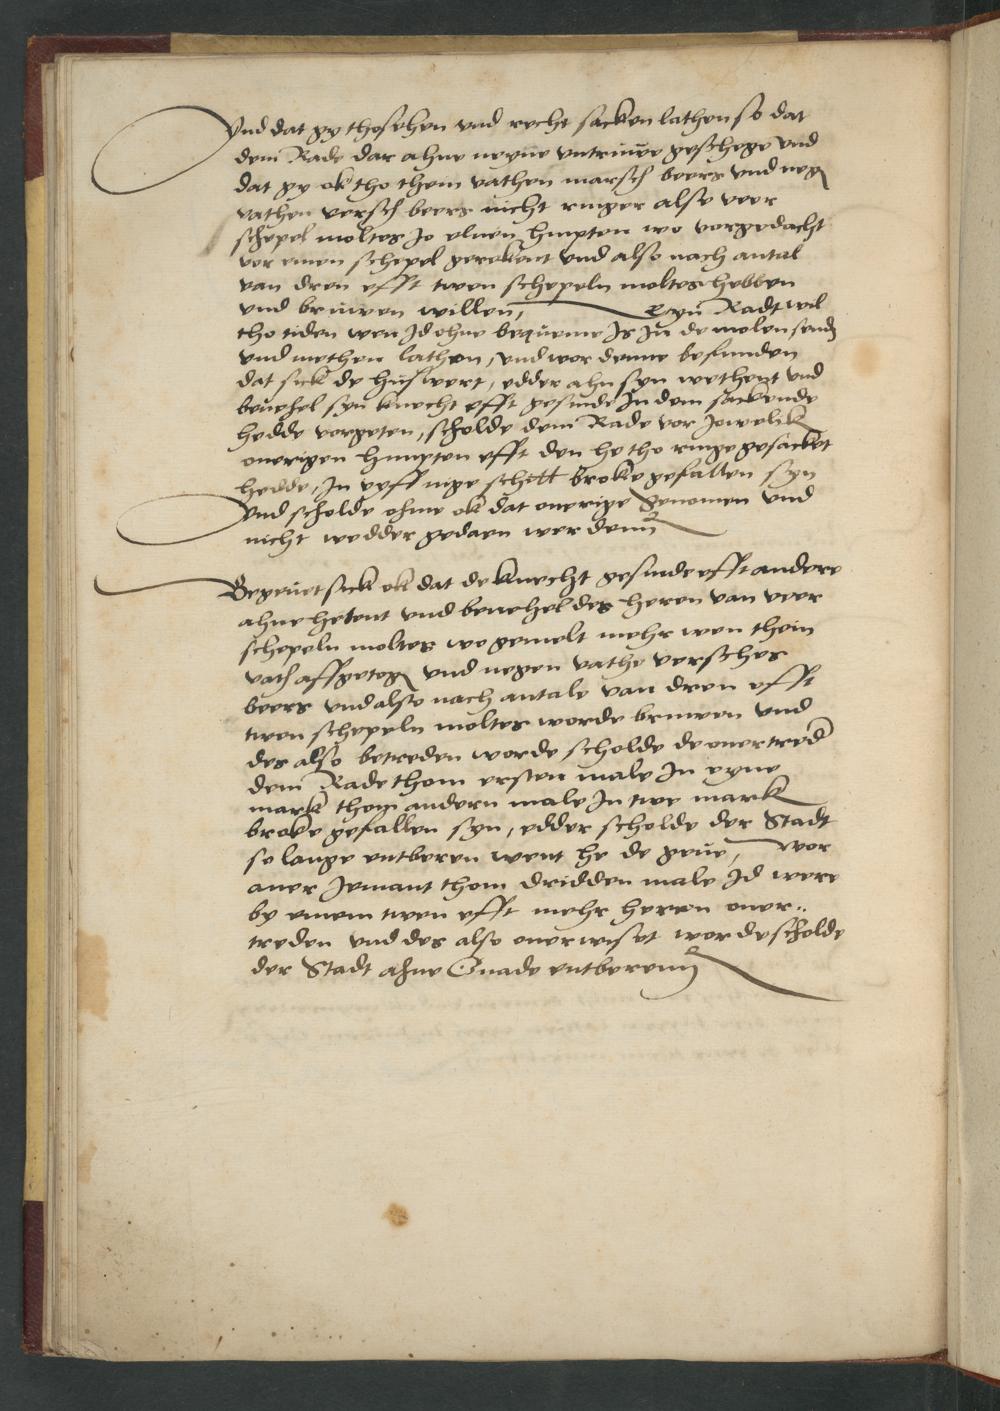 Vnd dat gy thosehen vnd recht sacken lathen so dat
dem Rade dar ahne neyne vntruwe geschege vnd
dat gy ok tho them vathen marsch beers vnd neg
vathen versch beers nicht ringer alse veer
schepel moltes Jo eluen himpten wo vorgedacht
vor einen schepel gerekent vnd also nach antal
van dren efft twen schepeln moltes hebben
vnd bruwen willen, Eyn Radt wil
tho tiden wen Jd ohne bequeme Is In de molen send
vnd methen lathen, vnd wor denne befunden
dat sick de huswert, edder ahn syn wethent vnd
beuehel syn knecht efft gesinde In dem sackende
hedde vorgeten, scholde dem Rade vor Jowelik
ouerigen himpten efft den he tho ringe gesacket
hedde, In vyff nige schill broke gefallen syn
Vnd scholde ohme ok dat ouerige genomen vnd
nicht wedder gedaen werdenn
Begeuet sick ok dat de knecht gesinde efft andere
ahne hetent vnd beuehel des heren van veer
schepeln moltes wo gemelt mehr wen thein
vath affgetog vnd negen vathe versches
beers vnd also nach antale van dren efft
twen schepeln moltes worde bruwen vnd
des also betreden worde scholde de ouertred
dem Rade thom ersten male In eyne
mark thom andern male In twe mark
broke gefallen syn, edder scholde der Stadt
so lange entberen went he de geue, wor
auer Jemant thom dridden male Jd were
by einem twen efft mehr herren ouer..
treden vnd des also ouerwiset worde scholde
der Stadt ahne Gnade entberenn